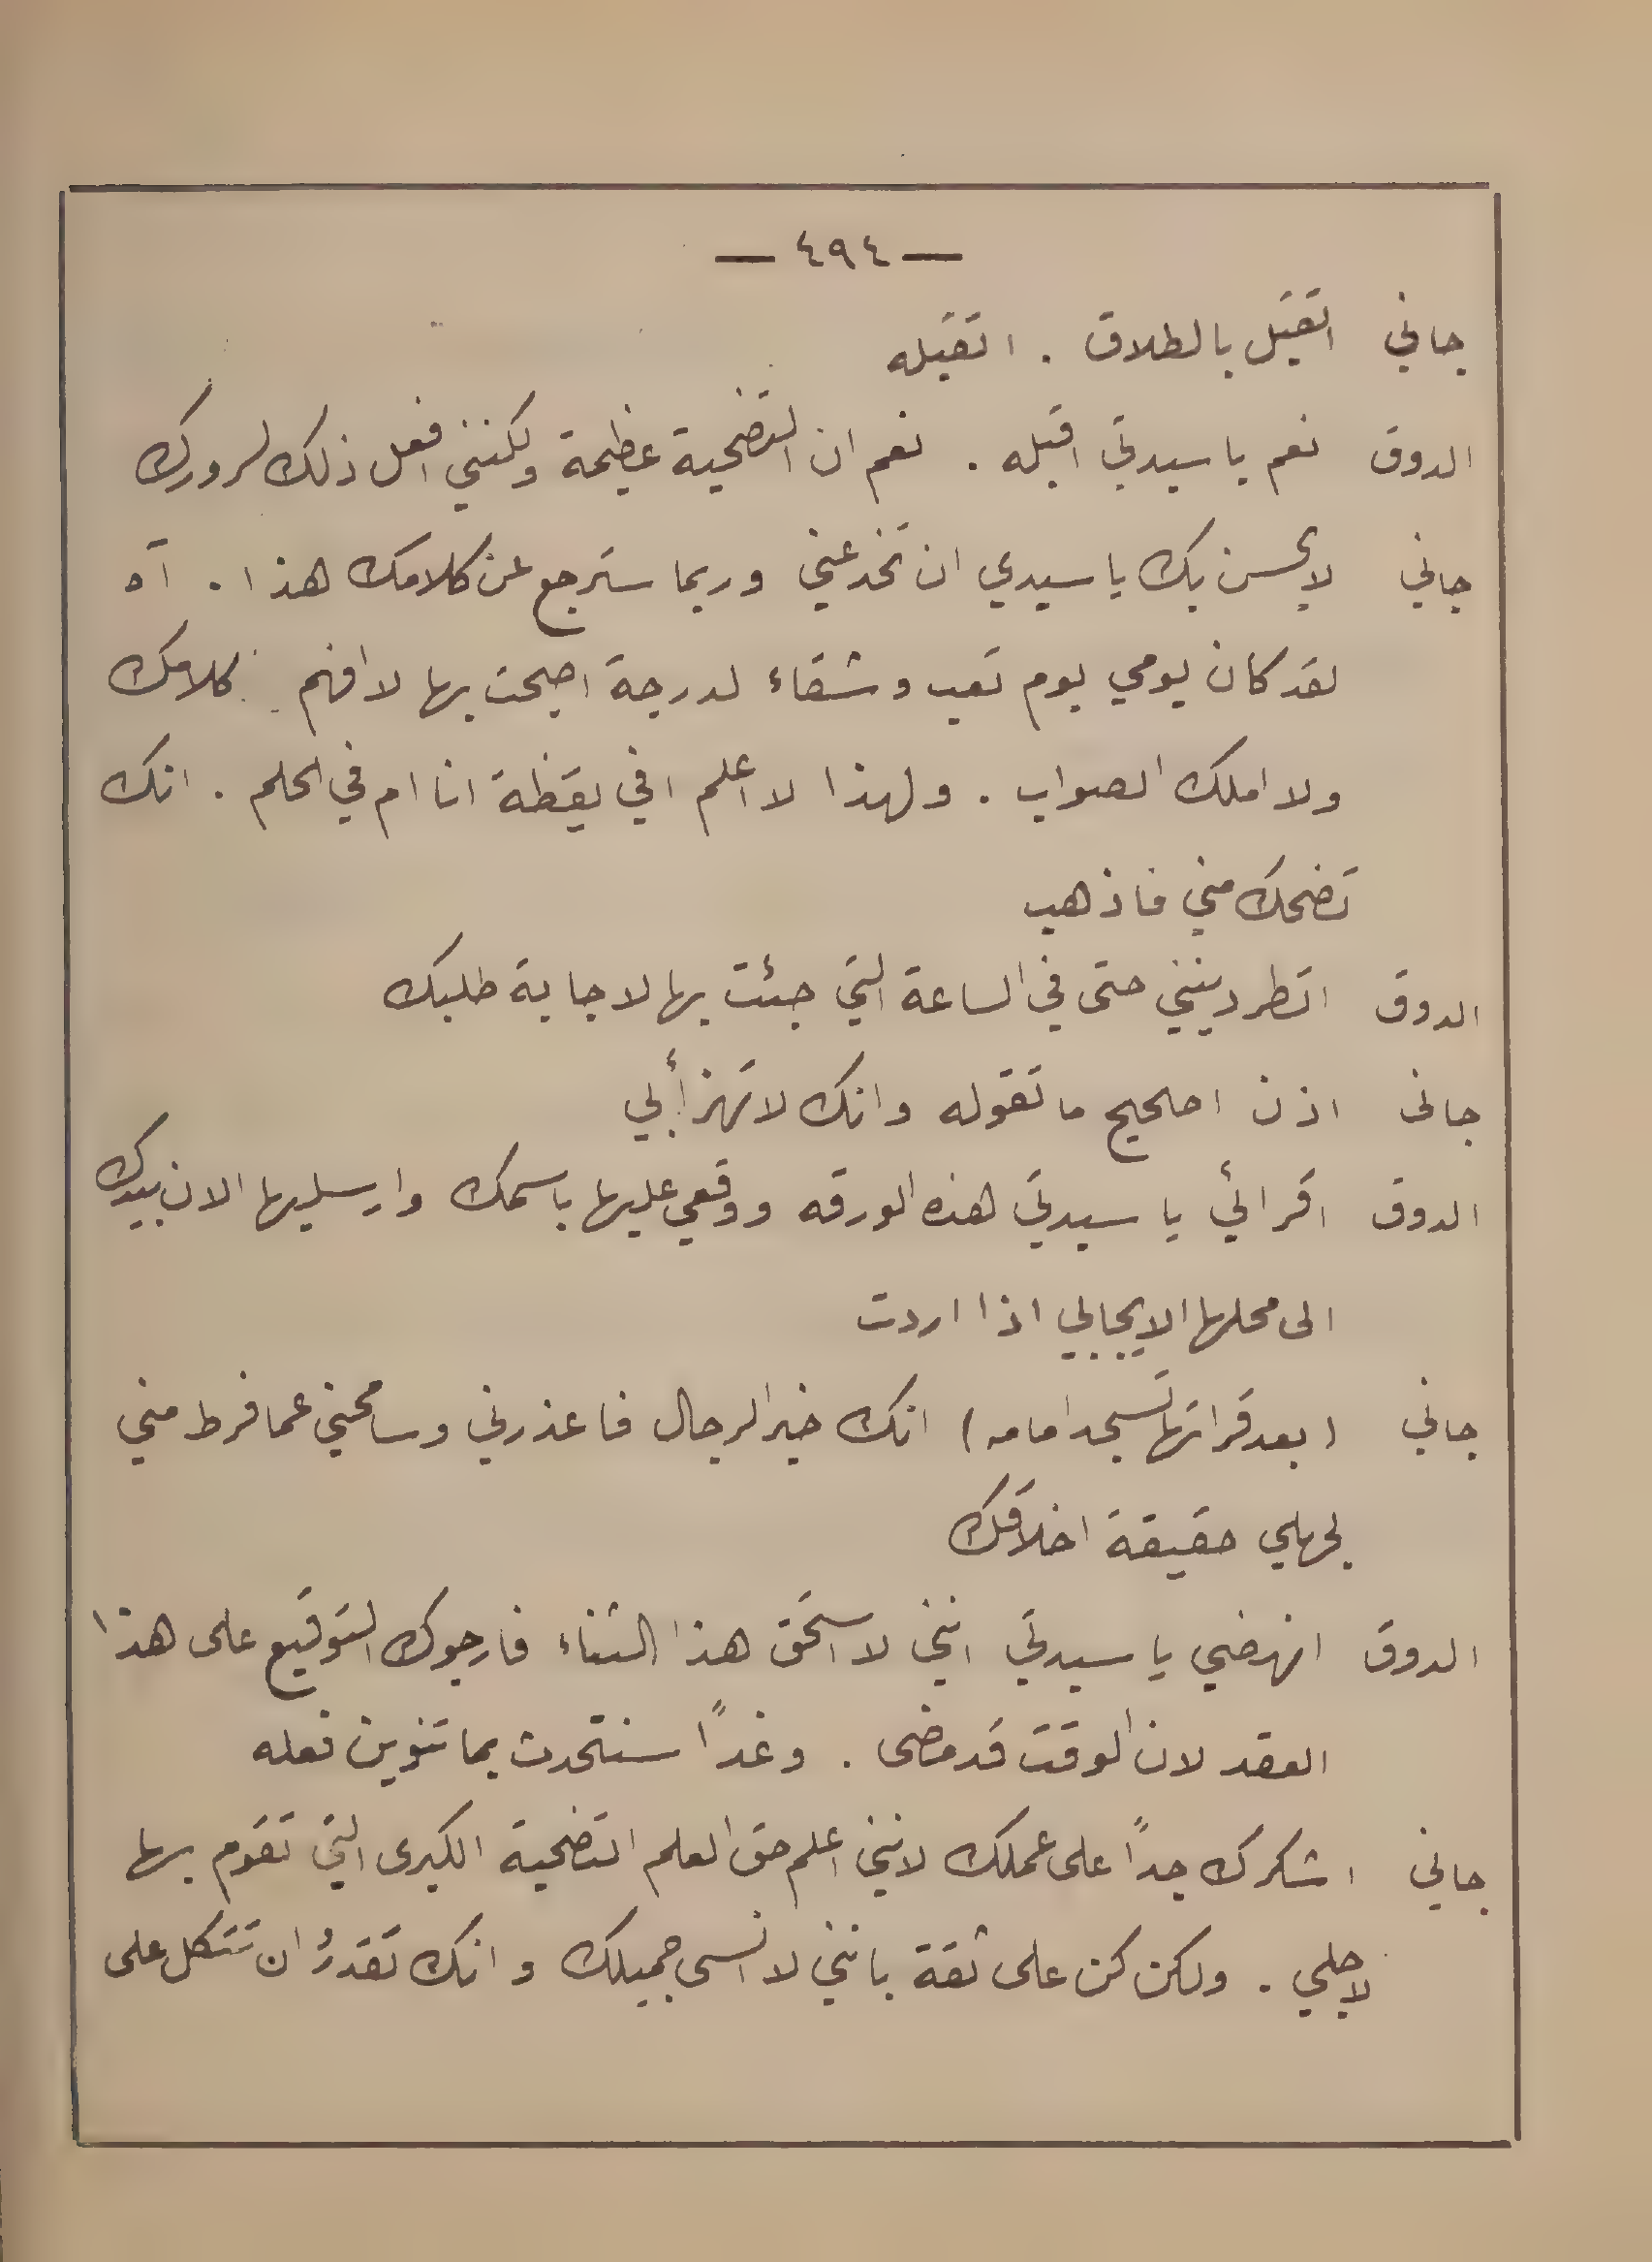 — ٤٩٤ —
جاني اتقبل بالطلاق . اتقبله
الدوق نعم يا سيدتي اقبله . نعم ان التضحية عظيمة ولكنني افعل ذلك لسرورك
جاني لا يحسن بك يا سيدي ان تخدعني وربما سترجع عن كلامك هذا . آه
لقد كان يومي يوم تعب وشقاء لدرجة اصبحت بها لا افهم كلامك
ولا املك الصواب . ولهذا لا اعلم افي يقظة انا ام في الحلم . انك
تضحك مني فاذهب
الدوق اتطردينني حتى في الساعة التي جئت بها لاجابة طلبك
جانى اذن اصحيح ما تقوله وانك لا تهزأ بي
الدوق اقرائي يا سيدتي هذه الورقه ووقعي عليها باسمك وارسليها الان بيدك
الى محلها الايجابي اذا اردت
جاني (بعد قرائتها تسجد امامه) انك خير الرجال فاعذرني وسامحني عما فرط مني
لجهلي حقيقة اخلاقك
الدوق انهضي يا سيدتي انني لا استحق هذا الثناء فارجوك التوقيع على هذا
العقد لان الوقت قد مضى . وغداً سنتحدث بما تنوين فعله
جاني اشكرك جداً على عملك لانني اعلم حق العلم التضحية الكبرى التي تقوم بها
لاجلي . ولكن كن على ثقة بانني لا انسى جميلك وانك تقدرُ ان تتكل على